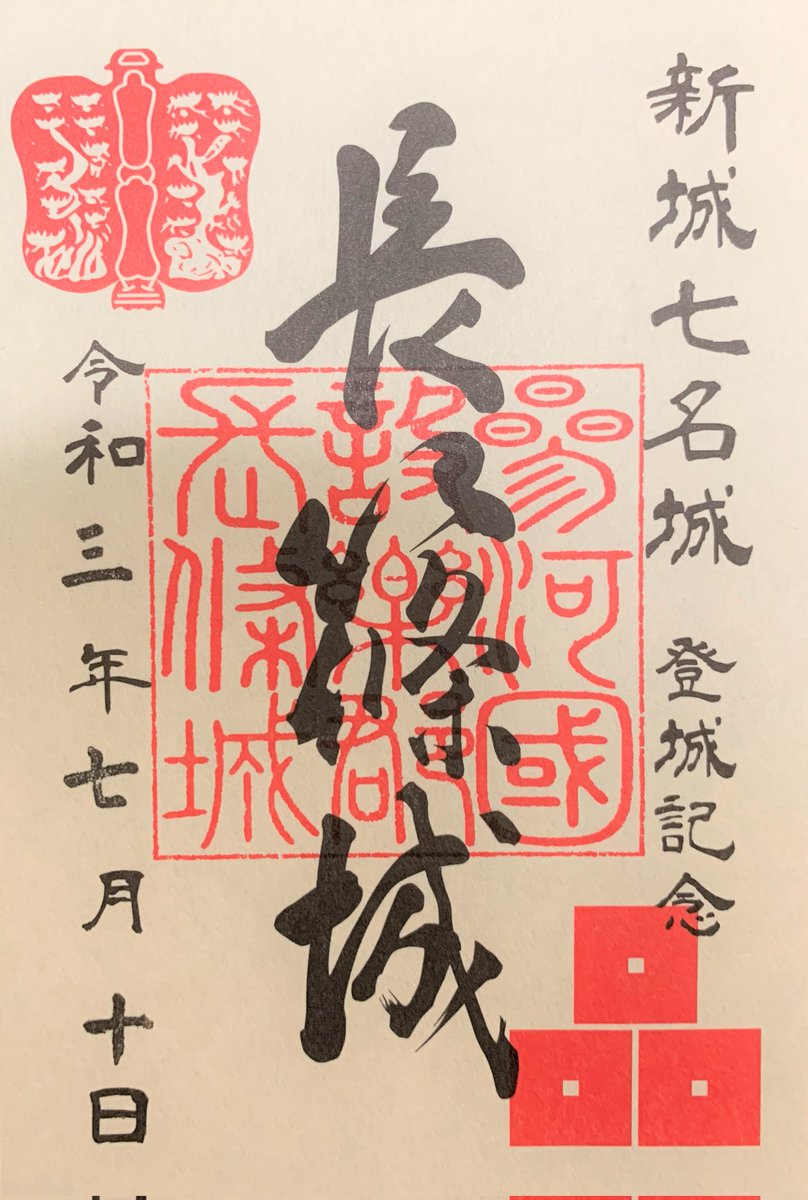 新城七名城 登城記念
長篠城
參河國
設樂郡
長篠城
令和三年七月十日